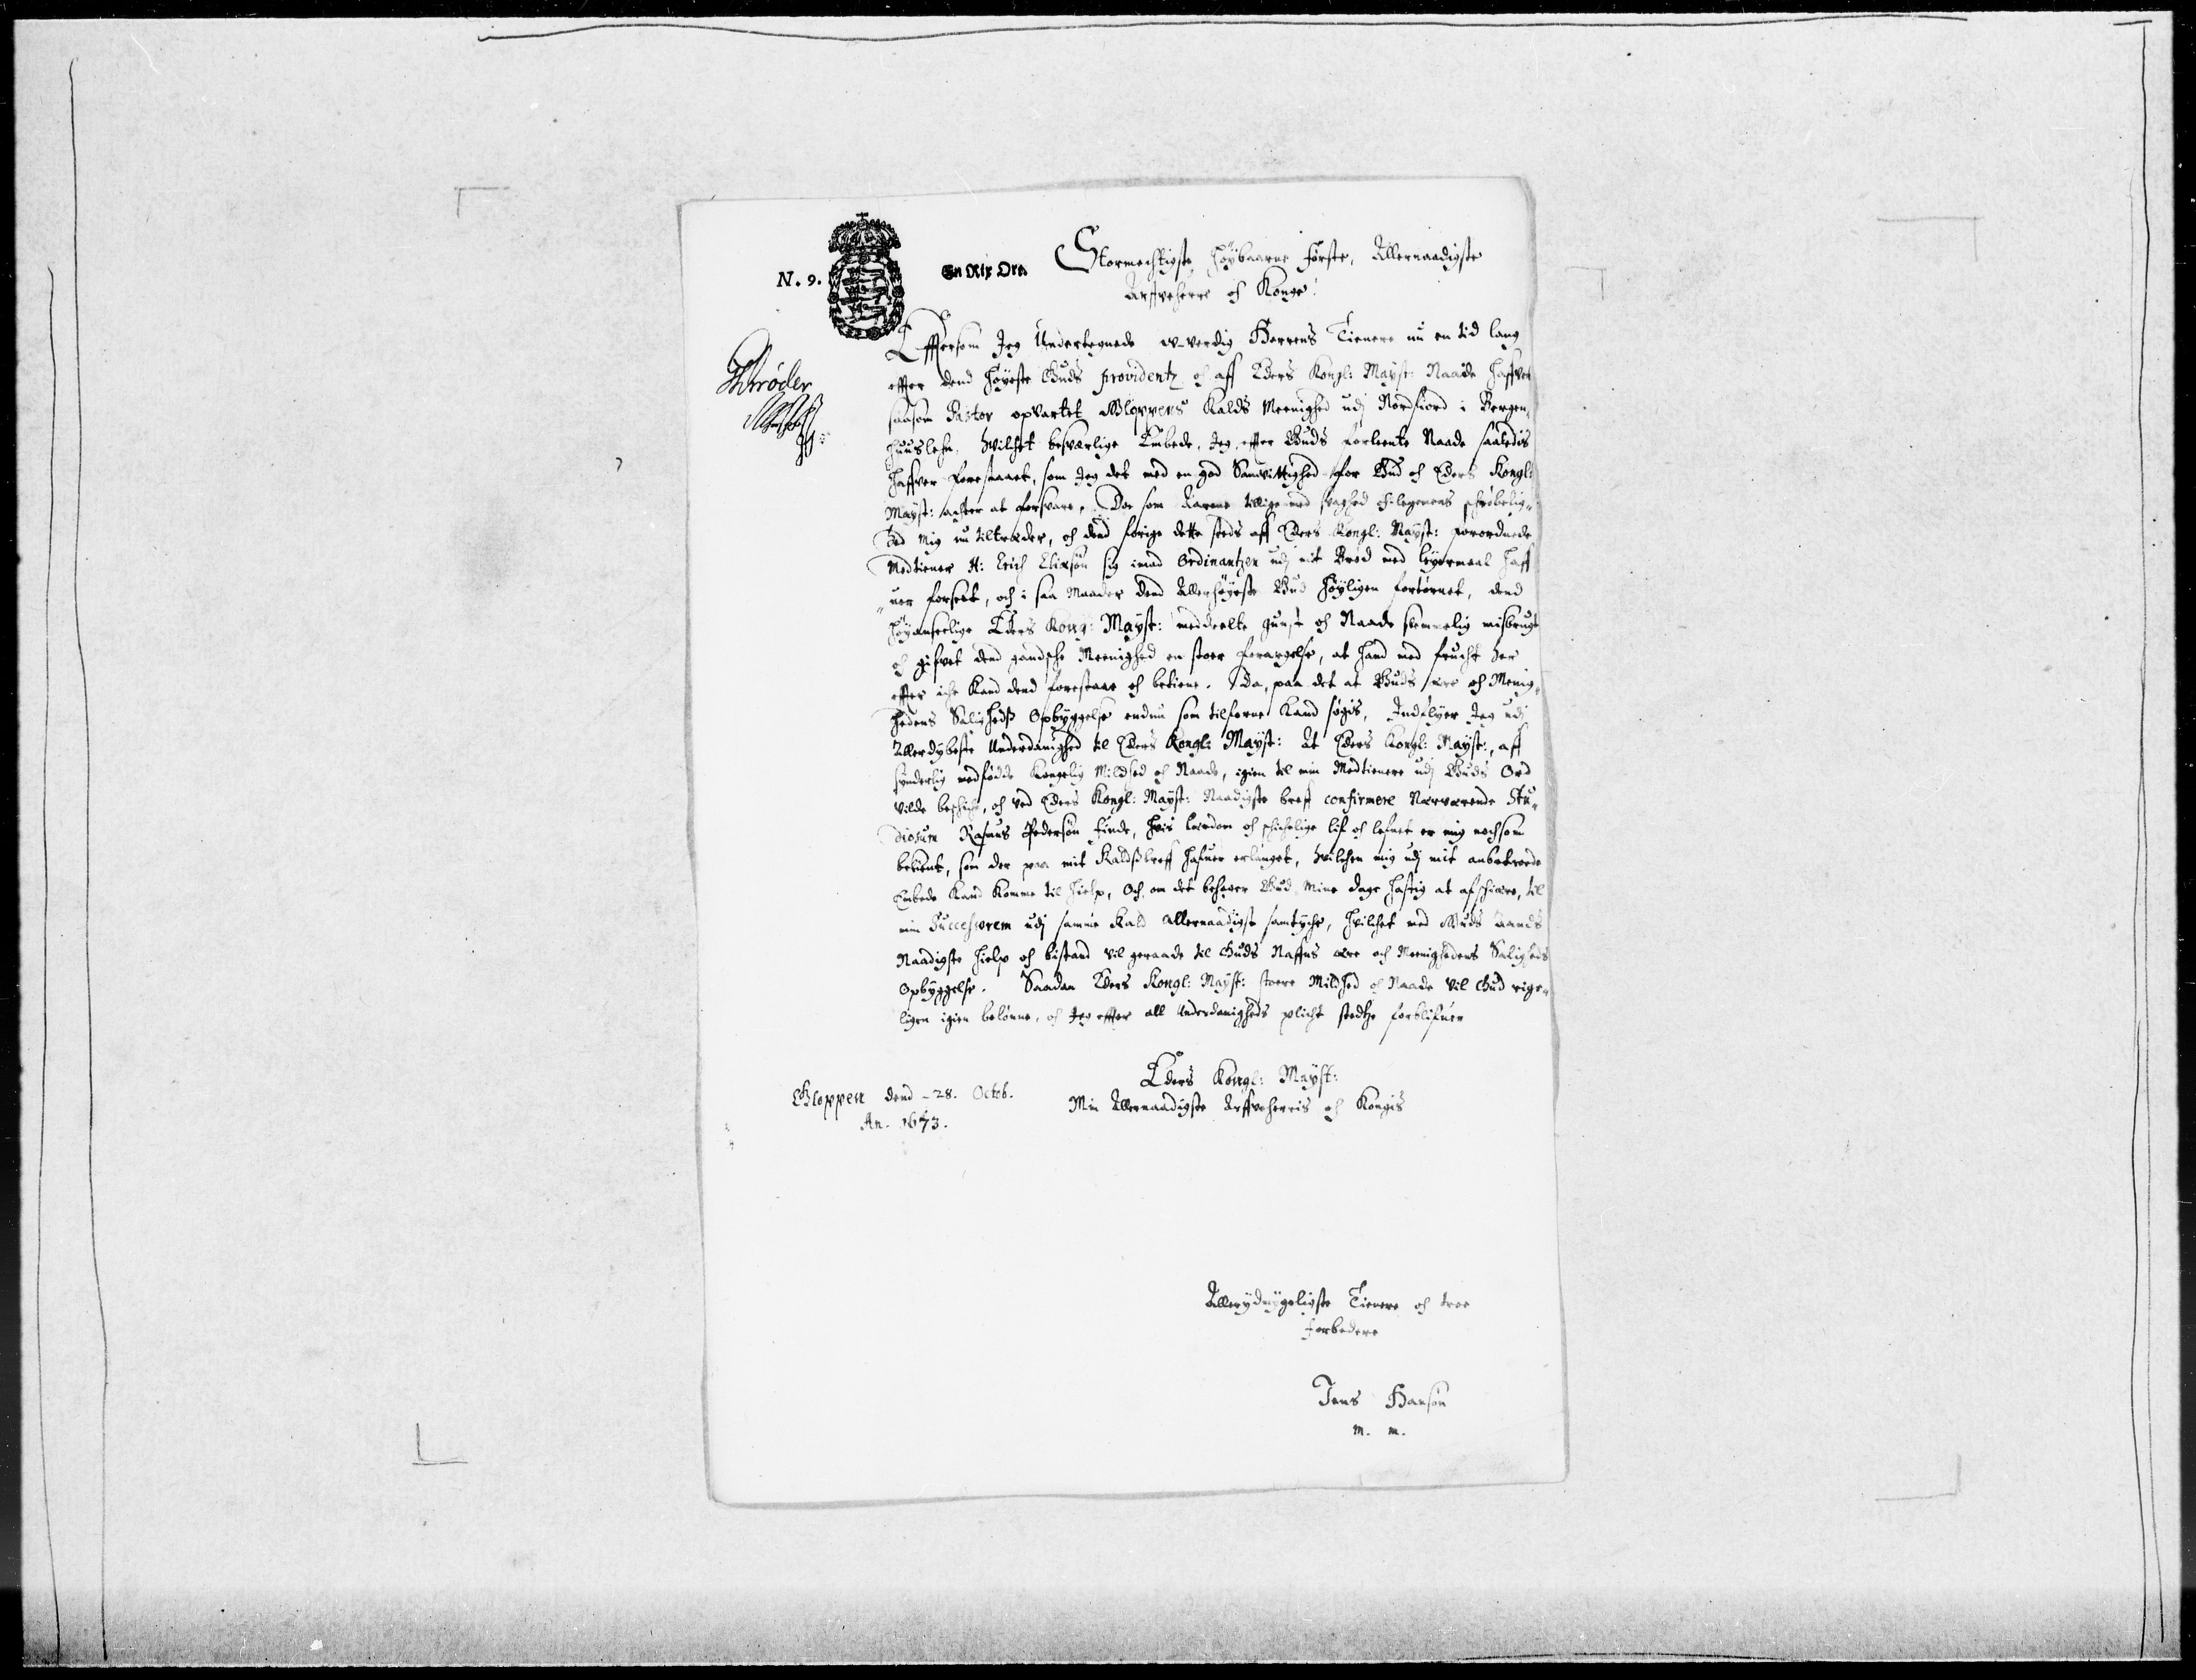 N. 9.
En Rix Ort.
Stormechtigste Høybaarne Første, Allernaadigste
Arffveherre och Konge!
Efftersom Jeg Undertegnede vverdig Herrens Tienere nu en tid lang
effter dend Høyeste Guds providentz och aff Eders Kongl: Mayst: Naade haffver
saasom Pastor opvartet Gloppens Kalds Meenighed udj Nordfiord i Bergen-
huuslehn, hvilchet besværlige Embede, Jeg, effter Guds forleente Naade saaledis
haffver forestaaet, som Jeg det med en god Samvittighed for Gud och Eders Kongl:
Mayst: achter at forsvare. Da som Aarene tillige med svaghed och legemens schrøbelig-
hed mig nu tiltræder, och dend forige dette steds aff Eders Kongl: Mayst: forordnede
Medtiener H: Erich Eliæsøn sig imod Ordinantzen udj it Brød med leyermaal haff
uer forseet, och i saa Maader dend Allerhøyeste Gud høyligen fortørnet, dend
høyanseelige Eders Kong: Mayst: meddeelte gunst och Naade skemmelig misbrugt
och gifvet dend gandsche Meenighed en stoer forargelse, at hand med frucht her
effter iche kand dend forestaae och betiene. Da, paa det at Guds ære och Menig-
hedens Salighedß Opbyggelse endnu som tilforne kand søgis, Indflyer Jeg udj
Allerdybeste Underdanighed til Eders Kongl: Mayst: At Eders Kongl: Mayst:, aff
synderlig medfødde Kongelig Mildhed och Naade, igien til min Medtienere udj Guds Ord
vilde beschiche, och ved Eders Kongl: Mayst: Naadigste breff confirmere Nærværende Stu-
diosum Rasmus Pedersøn Finde, hvis lærdom och schichelige lif och lefnet er mig nochsom
bekient, som der paa mit Kaldßbreff hafuer erlanget, hvilchen mig udj mit anbetroede
Embede kand komme til hielp, Och, om det behager Gud mine dage hastig at afschiære, til
min Successorem udj samme Kald allernaadigst samtyche, hvilchet med Guds Aands
Naadigste hielp och bistand vil geraade til Guds Naffns ære och Meenighedens Saligheds
Opbyggelse. Saadan Eders Kongl: Mayst: stoere Mildhed och Naade vil Gud rige-
ligen igien belønne, och Jeg effter all Underdanigheds plicht stedtze forblifuer
Eders Kongl: Mayst:
Min Allernaadigste Arffveherris och Kongis
Gloppen dend - 28. Octob.
An. 1673.
Allerydmygeligste Tienere och troe
forbedere
Jens Hansøn
m. m.